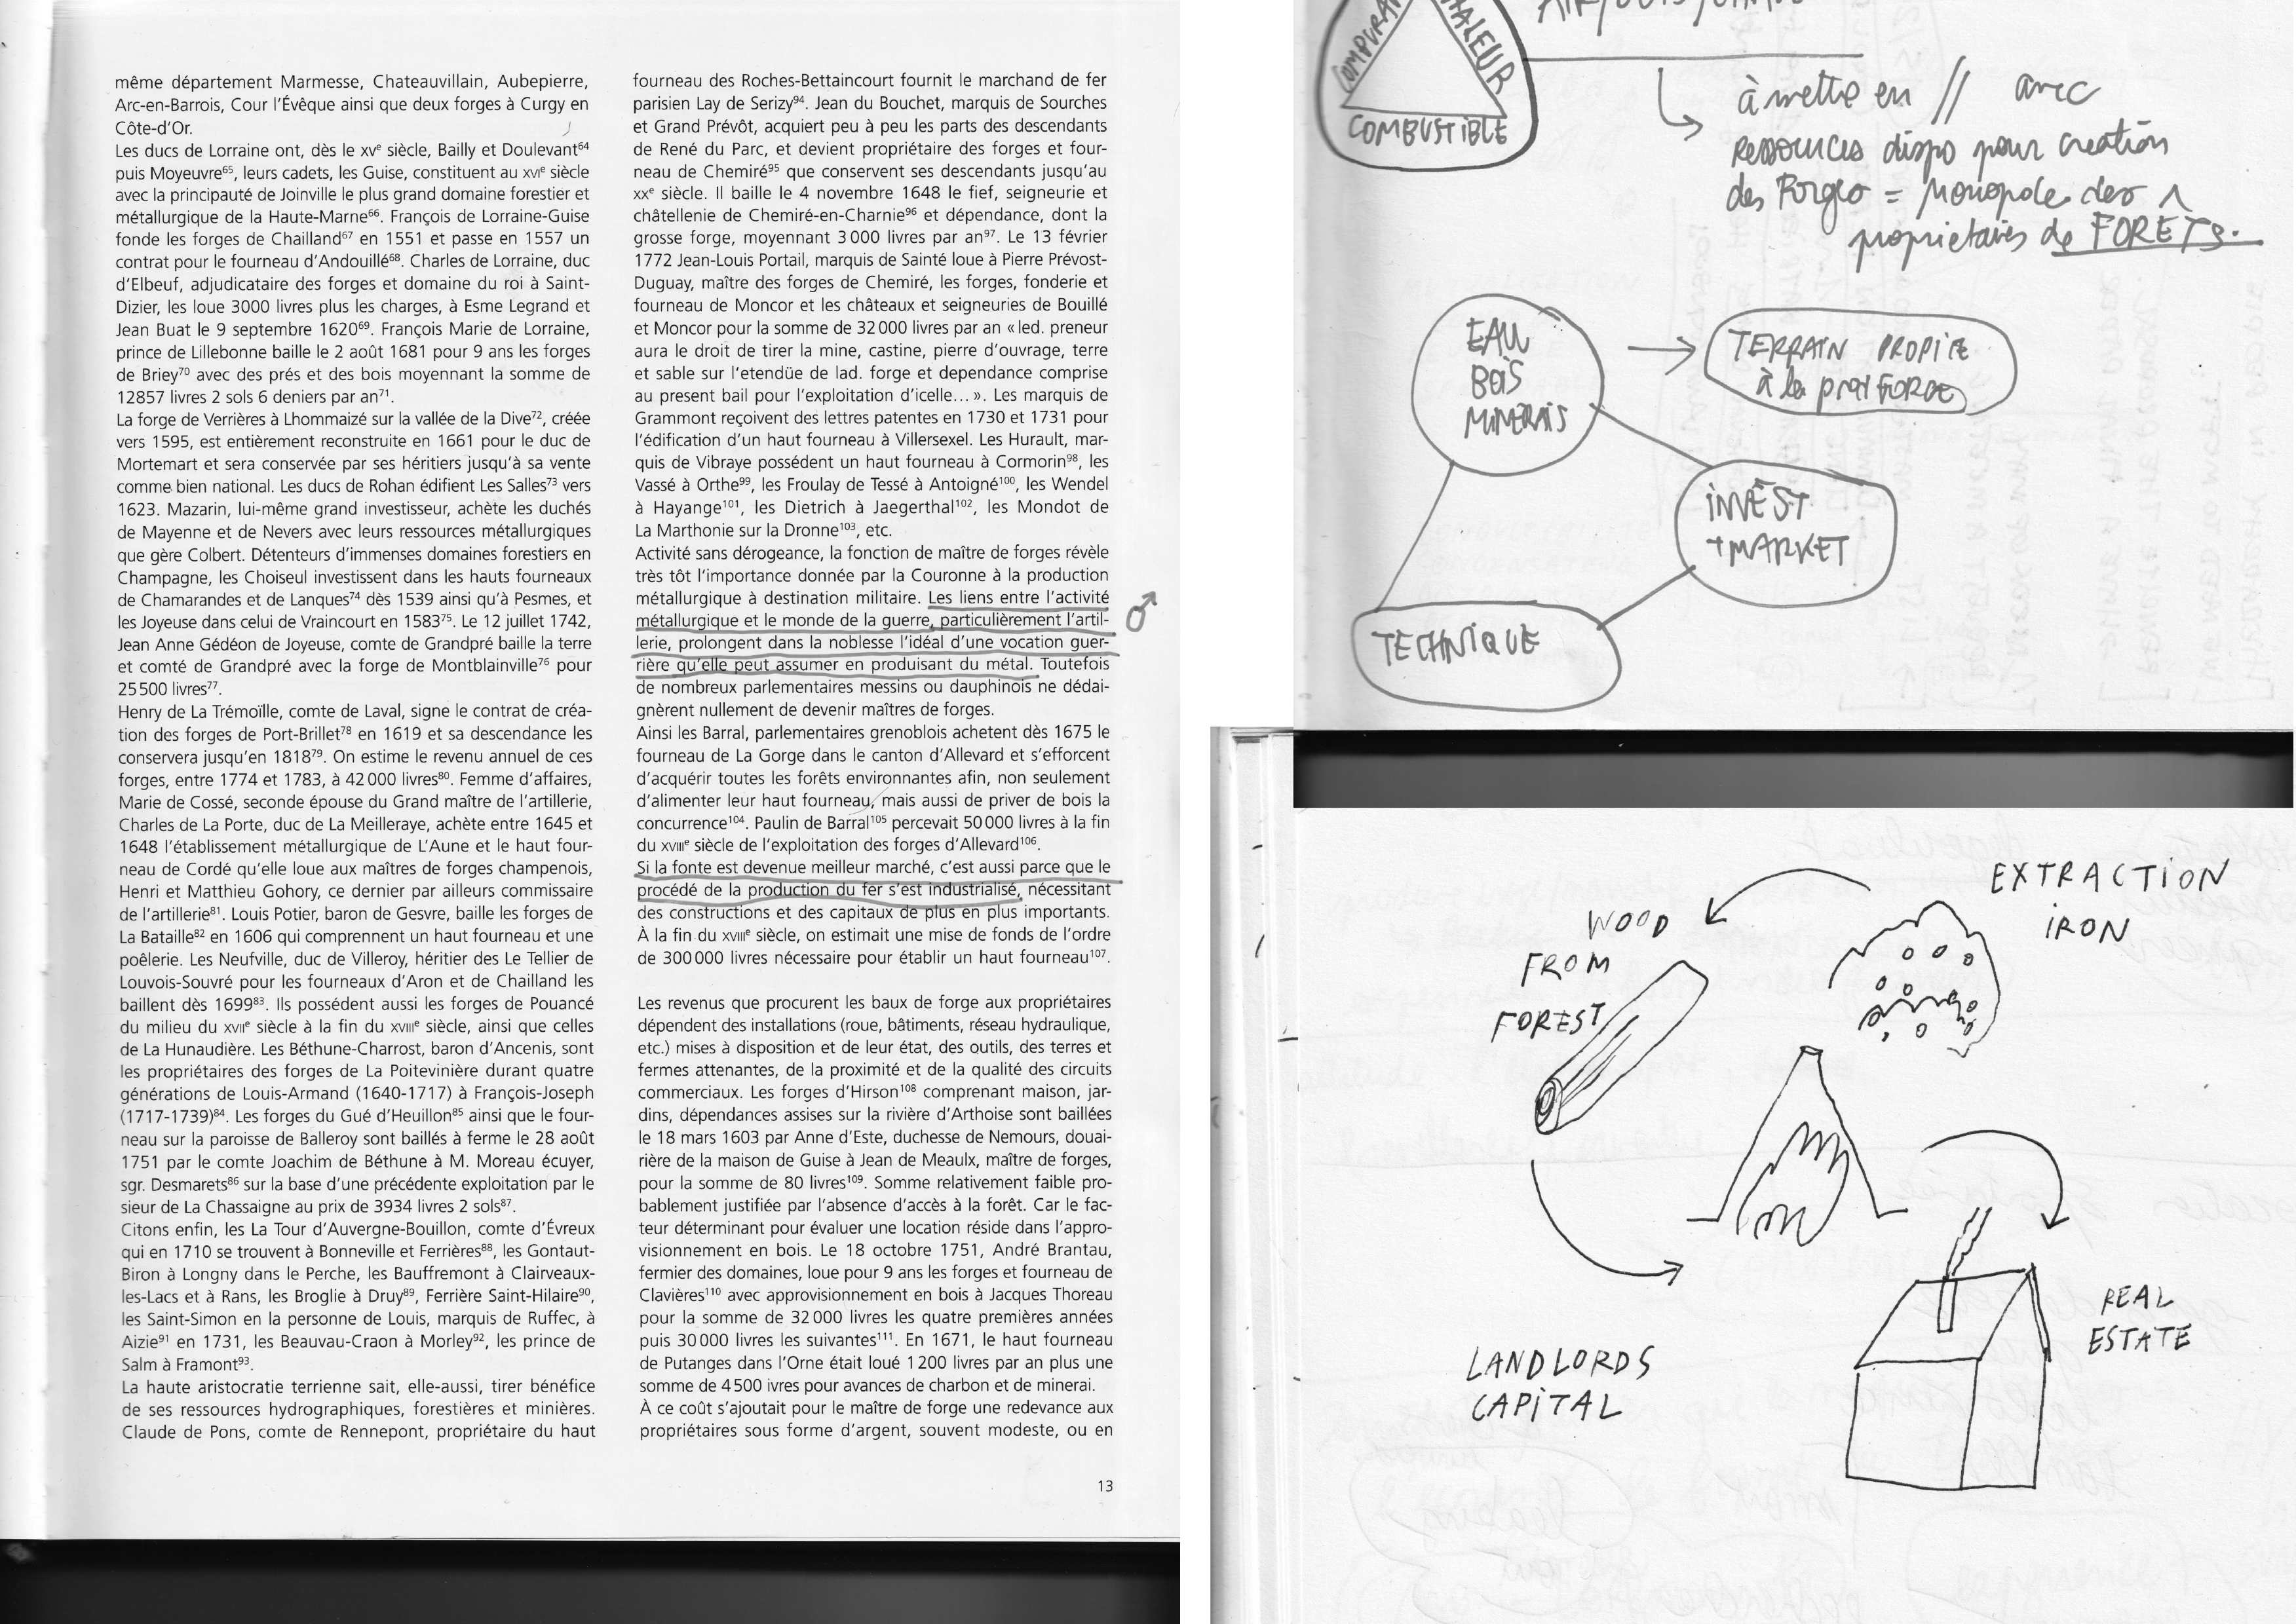 même département Marmesse, Chateauvillain, Aubepierre,
Arc-en-Barrois, Cour l'Évêque ainsi que deux forges à Curgy en
Côte-d'Or.
Les ducs de Lorraine ont, dès le xvᵉ siècle, Bailly et Doulevant⁶⁴
puis Moyeuvre⁶⁵, leurs cadets, les Guise, constituent au xvıᵉ siècle
avec la principauté de Joinville le plus grand domaine forestier et
métallurgique de la Haute-Marne⁶⁶. François de Lorraine-Guise
fonde les forges de Chailland⁶⁷ en 1551 et passe en 1557 un
contrat pour le fourneau d'Andouillé⁶⁸. Charles de Lorraine, duc
d'Elbeuf, adjudicataire des forges et domaine du roi à Saint-
Dizier, les loue 3000 livres plus les charges, à Esme Legrand et
Jean Buat le 9 septembre 1620⁶⁹. François Marie de Lorraine,
prince de Lillebonne baille le 2 août 1681 pour 9 ans les forges
de Briey⁷⁰ avec des prés et des bois moyennant la somme de
12857 livres 2 sols 6 deniers par an⁷¹.
La forge de Verrières à Lhommaizé sur la vallée de la Dive⁷², créée
vers 1595, est entièrement reconstruite en 1661 pour le duc de
Mortemart et sera conservée par ses héritiers jusqu'à sa vente
comme bien national. Les ducs de Rohan édifient Les Salles⁷³ vers
1623. Mazarin, lui-même grand investisseur, achète les duchés
de Mayenne et de Nevers avec leurs ressources métallurgiques
que gère Colbert. Détenteurs d'immenses domaines forestiers en
Champagne, les Choiseul investissent dans les hauts fourneaux
de Chamarandes et de Lanques⁷⁴ dès 1539 ainsi qu'à Pesmes, et
les Joyeuse dans celui de Vraincourt en 1583⁷⁵. Le 12 juillet 1742,
Jean Anne Gédéon de Joyeuse, comte de Grandpré baille la terre
et comté de Grandpré avec la forge de Montblainville⁷⁶ pour
25 500 livres⁷⁷.
Henry de La Trémoïlle, comte de Laval, signe le contrat de créa-
tion des forges de Port-Brillet⁷⁸ en 1619 et sa descendance les
conservera jusqu'en 1818⁷⁹. On estime le revenu annuel de ces
forges, entre 1774 et 1783, à 42 000 livres⁸⁰. Femme d'affaires,
Marie de Cossé, seconde épouse du Grand maître de l'artillerie,
Charles de La Porte, duc de La Meilleraye, achète entre 1645 et
1648 l'établissement métallurgique de L'Aune et le haut four-
neau de Cordé qu'elle loue aux maîtres de forges champenois,
Henri et Matthieu Gohory, ce dernier par ailleurs commissaire
de l'artillerie⁸¹. Louis Potier, baron de Gesvre, baille les forges de
La Bataille⁸² en 1606 qui comprennent un haut fourneau et une
poêlerie. Les Neufville, duc de Villeroy, héritier des Le Tellier de
Louvois-Souvré pour les fourneaux d'Aron et de Chailland les
baillent dès 1699⁸³. Ils possédent aussi les forges de Pouancé
du milieu du xvııᵉ siècle à la fin du xvıııᵉ siècle, ainsi que celles
de La Hunaudière. Les Béthune-Charrost, baron d'Ancenis, sont
les propriétaires des forges de La Poitevinière durant quatre
générations de Louis-Armand (1640-1717) à François-Joseph
(1717-1739)⁸⁴. Les forges du Gué d'Heuillon⁸⁵ ainsi que le four-
neau sur la paroisse de Balleroy sont baillés à ferme le 28 août
1751 par le comte Joachim de Béthune à M. Moreau écuyer,
sgr. Desmarets⁸⁶ sur la base d'une précédente exploitation par le
sieur de La Chassaigne au prix de 3934 livres 2 sols⁸⁷.
Citons enfin, les La Tour d'Auvergne-Bouillon, comte d'Évreux
qui en 1710 se trouvent à Bonneville et Ferrières⁸⁸, les Gontaut-
Biron à Longny dans le Perche, les Bauffremont à Clairveaux-
les-Lacs et à Rans, les Broglie à Druy⁸⁹, Ferrière Saint-Hilaire⁹⁰,
les Saint-Simon en la personne de Louis, marquis de Ruffec, à
Aizie⁹¹ en 1731, les Beauvau-Craon à Morley⁹², les prince de
Salm à Framont⁹³.
La haute aristocratie terrienne sait, elle-aussi, tirer bénéfice
de ses ressources hydrographiques, forestières et minières.
Claude de Pons, comte de Rennepont, propriétaire du haut
fourneau des Roches-Bettaincourt fournit le marchand de fer
parisien Lay de Serizy⁹⁴. Jean du Bouchet, marquis de Sourches
et Grand Prévôt, acquiert peu à peu les parts des descendants
de René du Parc, et devient propriétaire des forges et four-
neau de Chemiré⁹⁵ que conservent ses descendants jusqu'au
xxᵉ siècle. Il baille le 4 novembre 1648 le fief, seigneurie et
châtellenie de Chemiré-en-Charnie⁹⁶ et dépendance, dont la
grosse forge, moyennant 3 000 livres par an⁹⁷. Le 13 février
1772 Jean-Louis Portail, marquis de Sainté loue à Pierre Prévost-
Duguay, maître des forges de Chemiré, les forges, fonderie et
fourneau de Moncor et les châteaux et seigneuries de Bouillé
et Moncor pour la somme de 32 000 livres par an « led. preneur
aura le droit de tirer la mine, castine, pierre d'ouvrage, terre
et sable sur l'etendüe de lad. forge et dependance comprise
au present bail pour l'exploitation d'icelle... ». Les marquis de
Grammont reçoivent des lettres patentes en 1730 et 1731 pour
l'édification d'un haut fourneau à Villersexel. Les Hurault, mar-
quis de Vibraye possédent un haut fourneau à Cormorin⁹⁸, les
Vassé à Orthe⁹⁹, les Froulay de Tessé à Antoigné¹⁰⁰, les Wendel
à Hayange¹⁰¹, les Dietrich à Jaegerthal¹⁰², les Mondot de
La Marthonie sur la Dronne¹⁰³, etc.
Activité sans dérogeance, la fonction de maître de forges révèle
très tôt l'importance donnée par la Couronne à la production
métallurgique à destination militaire. Les liens entre l'activité
métallurgique et le monde de la guerre, particulièrement l'artil-
lerie, prolongent dans la noblesse l'idéal d'une vocation guer-
rière qu'elle peut assumer en produisant du métal. Toutefois
de nombreux parlementaires messins ou dauphinois ne dédai-
gnèrent nullement de devenir maîtres de forges.
Ainsi les Barral, parlementaires grenoblois achetent dès 1675 le
fourneau de La Gorge dans le canton d'Allevard et s'efforcent
d'acquérir toutes les forêts environnantes afin, non seulement
d'alimenter leur haut fourneau, mais aussi de priver de bois la
concurrence¹⁰⁴. Paulin de Barral¹⁰⁵ percevait 50 000 livres à la fin
du xvıııᵉ siècle de l'exploitation des forges d'Allevard¹⁰⁶.
Si la fonte est devenue meilleur marché, c'est aussi parce que le
procédé de la production du fer s'est industrialisé, nécessitant
des constructions et des capitaux de plus en plus importants.
À la fin du xvıııᵉ siècle, on estimait une mise de fonds de l'ordre
de 300 000 livres nécessaire pour établir un haut fourneau¹⁰⁷.
Les revenus que procurent les baux de forge aux propriétaires
dépendent des installations (roue, bâtiments, réseau hydraulique,
etc.) mises à disposition et de leur état, des outils, des terres et
fermes attenantes, de la proximité et de la qualité des circuits
commerciaux. Les forges d'Hirson¹⁰⁸ comprenant maison, jar-
dins, dépendances assises sur la rivière d'Arthoise sont baillées
le 18 mars 1603 par Anne d'Este, duchesse de Nemours, douai-
rière de la maison de Guise à Jean de Meaulx, maître de forges,
pour la somme de 80 livres¹⁰⁹. Somme relativement faible pro-
bablement justifiée par l'absence d'accès à la forêt. Car le fac-
teur déterminant pour évaluer une location réside dans l'appro-
visionnement en bois. Le 18 octobre 1751, André Brantau,
fermier des domaines, loue pour 9 ans les forges et fourneau de
Clavières¹¹⁰ avec approvisionnement en bois à Jacques Thoreau
pour la somme de 32 000 livres les quatre premières années
puis 30 000 livres les suivantes¹¹¹. En 1671, le haut fourneau
de Putanges dans l'Orne était loué 1 200 livres par an plus une
somme de 4 500 ivres pour avances de charbon et de minerai.
À ce coût s'ajoutait pour le maître de forge une redevance aux
propriétaires sous forme d'argent, souvent modeste, ou en
13
COMBUSTIBLE
à mettre en // avec
ressources dispo pour création
des Forges = Monopole des
propriétaires de FORETS.
EAU
BOIS
MINERAIS
TERRAIN PROPICE
à la FORGE
INVEST
+ MARKET
TECHNIQUE
EXTRACTION
IRON
WOOD
FROM
FOREST
LANDLORDS
CAPITAL
REAL
ESTATE